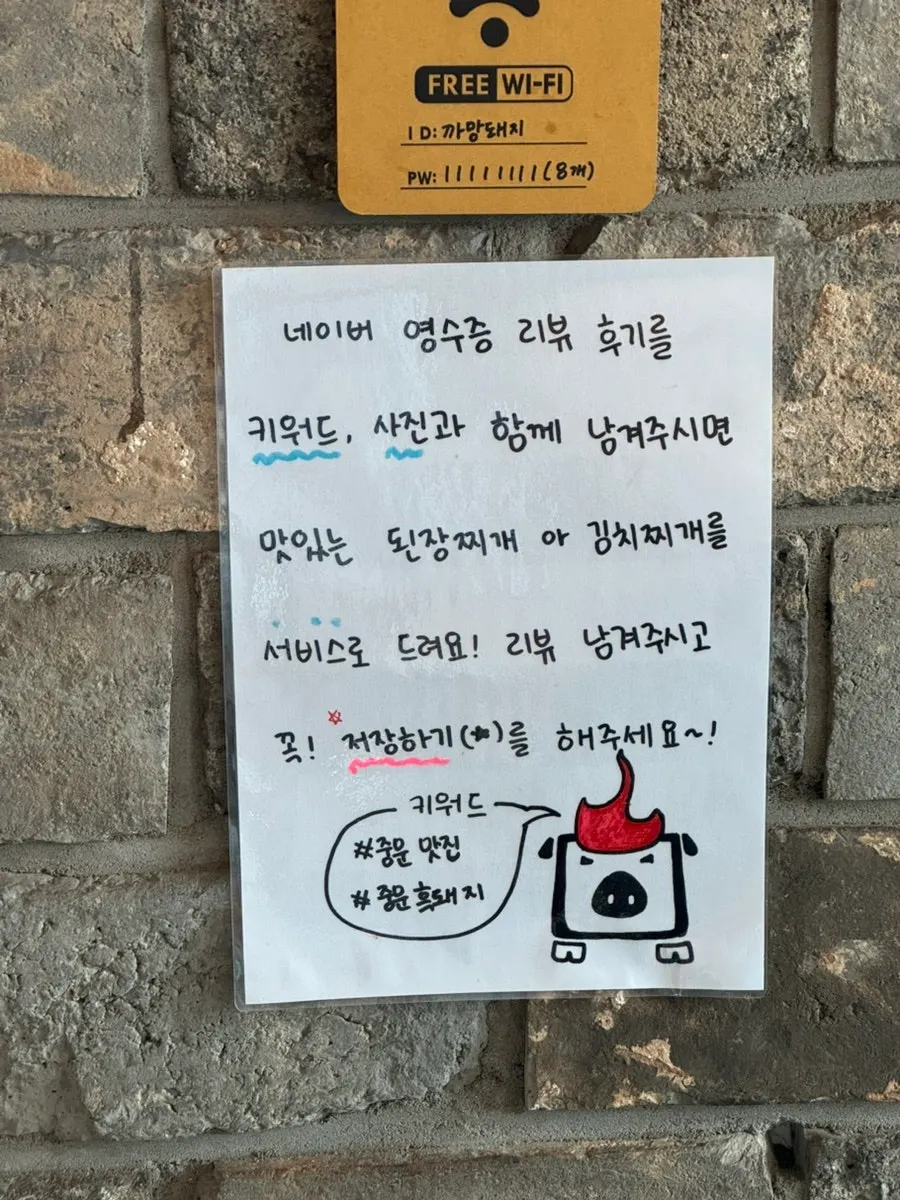 FREE WI-FI
ID: 까망돼지
PW: 11111111(8개)
네이버 영수증 리뷰 후기를
키워드, 사진과 함께 남겨주시면
맛있는 된장찌개 아 김치찌개를
서비스로 드려요! 리뷰 남겨주시고
꼭! 저장하기(★)를 해주세요~!
키워드
#중문 맛진
#중문흑돼지